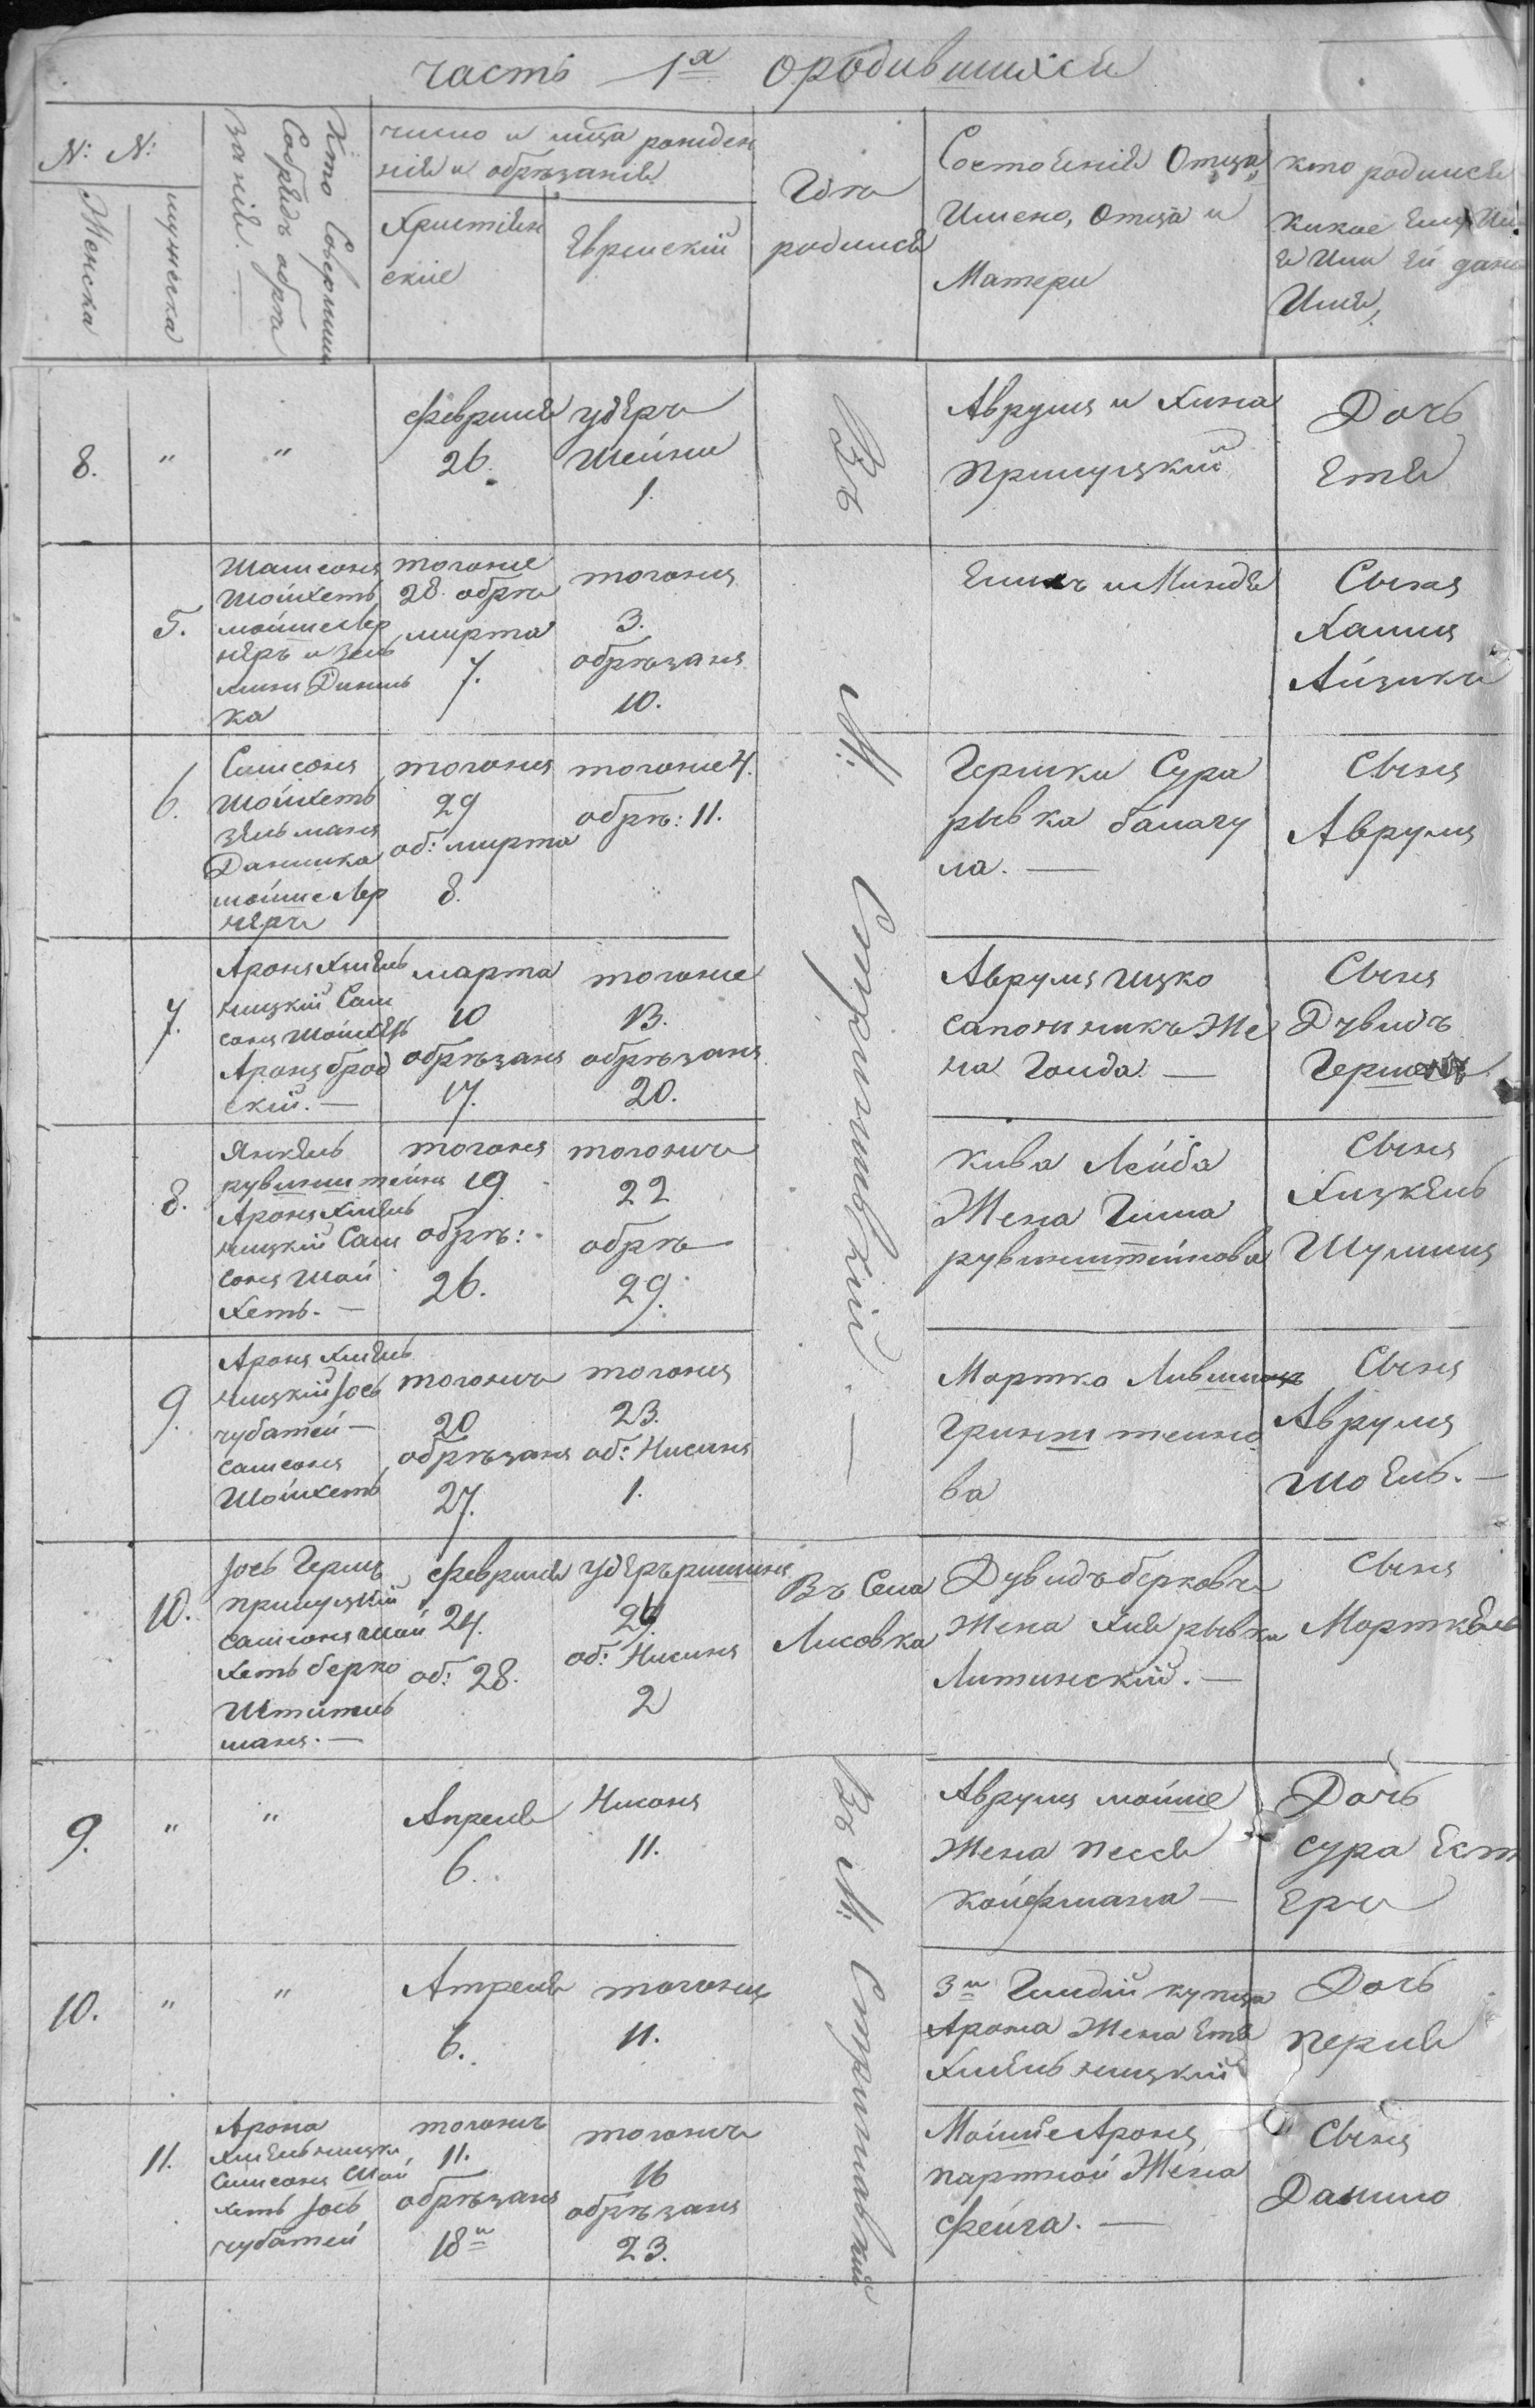 часть 1я ородившихся
№: №:
Женска
мужеска
Кто Совершил
Собрядъ обрѣ
занія. —
число и мѣца рожден
нія и обрѣзанія
Христіян
скіе
Еврейскій
Гдѣ
родился
Состоенія Отца
Имено, Отца и
Матери
кто родился
какое Ему Им.
я Или Ей дано
Имя,
8. " "
февраля
26.
удеръ
Шейни
1.
Въ
Аврумъ и Хина
Прилуцкій
Дочь
Етя
5.
Шамсонъ
Шойхетъ
мойше Лер
неръ и Зел
манъ Даниль
ка
тогоже
28. обрѣ
марта
7.
тогожъ
3.
обрѣзанъ
10.
и Миндя
Сынъ
Хаимъ
Айзикъ
6.
Самсонъ
Шойхетъ
зельманъ
Данилка
мойше Лер
неръ
тогожъ
29
об: марта
8.
тогоже 4.
обрѣ: 11.
Гершки Сура
рывка балагу
ла. —
Сынъ
Аврумъ
7.
Аронъ Хмель
ницкій Сам
сонъ Шойхетъ
Аронъ брод
скій. —
марта
10
обрѣзанъ
17.
тогоже
13.
обрѣзанъ
20.
Аврумъ ицко
сапожникъ Же
на Голда. —
Сынъ
Дувидъ
8.
Янкель
рувинштейнъ
Аронъ Хмель
ницкій Сам
сонъ Шой
хетъ. —
тогожъ
19
обрѣ:
26.
тогожъ
22
обрѣ
29.
Кива Лейба
Жена
рувинштейнова
Сынъ
Хацкель
Шулимъ
М: Стрижавкій. —
9.
Аронъ Хмель
ницкій Іось
чубатей —
самсонъ
Шойхетъ
тогожъ
20
обрѣзанъ
27.
тогожъ
23.
об: Нисанъ
1.
Мортко
Гринштейно
ва
Сынъ
Аврумъ
Шоель. —
10.
Іось Герш
прилуцкій
самсонъ Шой
хетъ берко
манъ. —
февраля
24.
об: 28.
удеръ
24
об: Нисанъ
2
Въ Села
Лисовка
Дувидъ берковъ
Жена Хая рывка
Литинскій. —
Сынъ
Морткель
9. " "
Апреля
6.
Нисанъ
11.
Въ М: Стрижавкій
Аврумъ мойше
Жена песся
койфмана —
Дочь
сура Ест
еръ
10. " "
Апреля
6.
тогожъ
11.
3й Гилдій купца
Арона Жена Етя
Хмельницкій
Дочь
перля
11.
Арона
Хмельницки
Самсонъ Шой
хетъ Іось
чубатей
тогожъ
11.
обрѣзанъ
18й
тогожъ
16
обрѣзанъ
23.
Мойше Аронъ
партной Жена
фейга. —
Сынъ
Данило